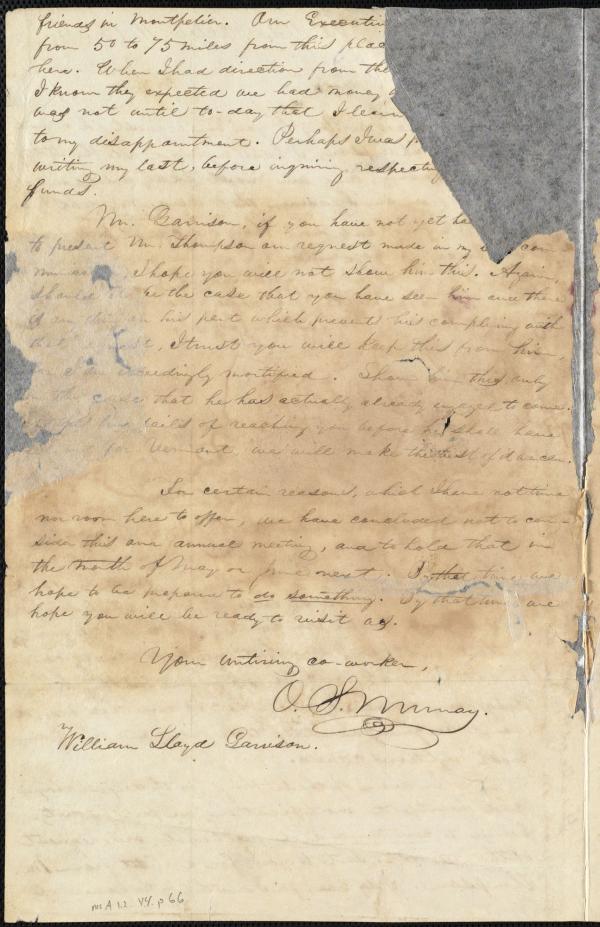 friends in Montpelier. Our Executi
from 50 to 75 miles from this plac
here. When I had direction from the
I know they expected we had money
was not until to-day that I learn
to my disappointment. Perhaps I was
writing my last, before inquiring respecting
funds.
Mr. Garrison, if you have not yet ha
to present Mr. Thompson our request made in my com
I hope you will not show him this. Again,
should be the case that you have seen him and there
on his part which prevents his complying with
I trust you will keep this from him,
exceedingly mortified. Show him this only
in the case that he has actually already engaged to come.
fails of reaching you before he shall have
for Vermont, we will make the best of
For certain reasons, which I have not time
nor room here to offer, we have concluded not to con-
sider this our annual meeting, and to hold that in
the month of May or June next. By that time we
hope to be prepared to do something. By that time we
hope you will be ready to visit us.
Your untiring co-worker,
O. S. Murray.
William Lloyd Garrison.
Ms A 1.2 V4. p 66